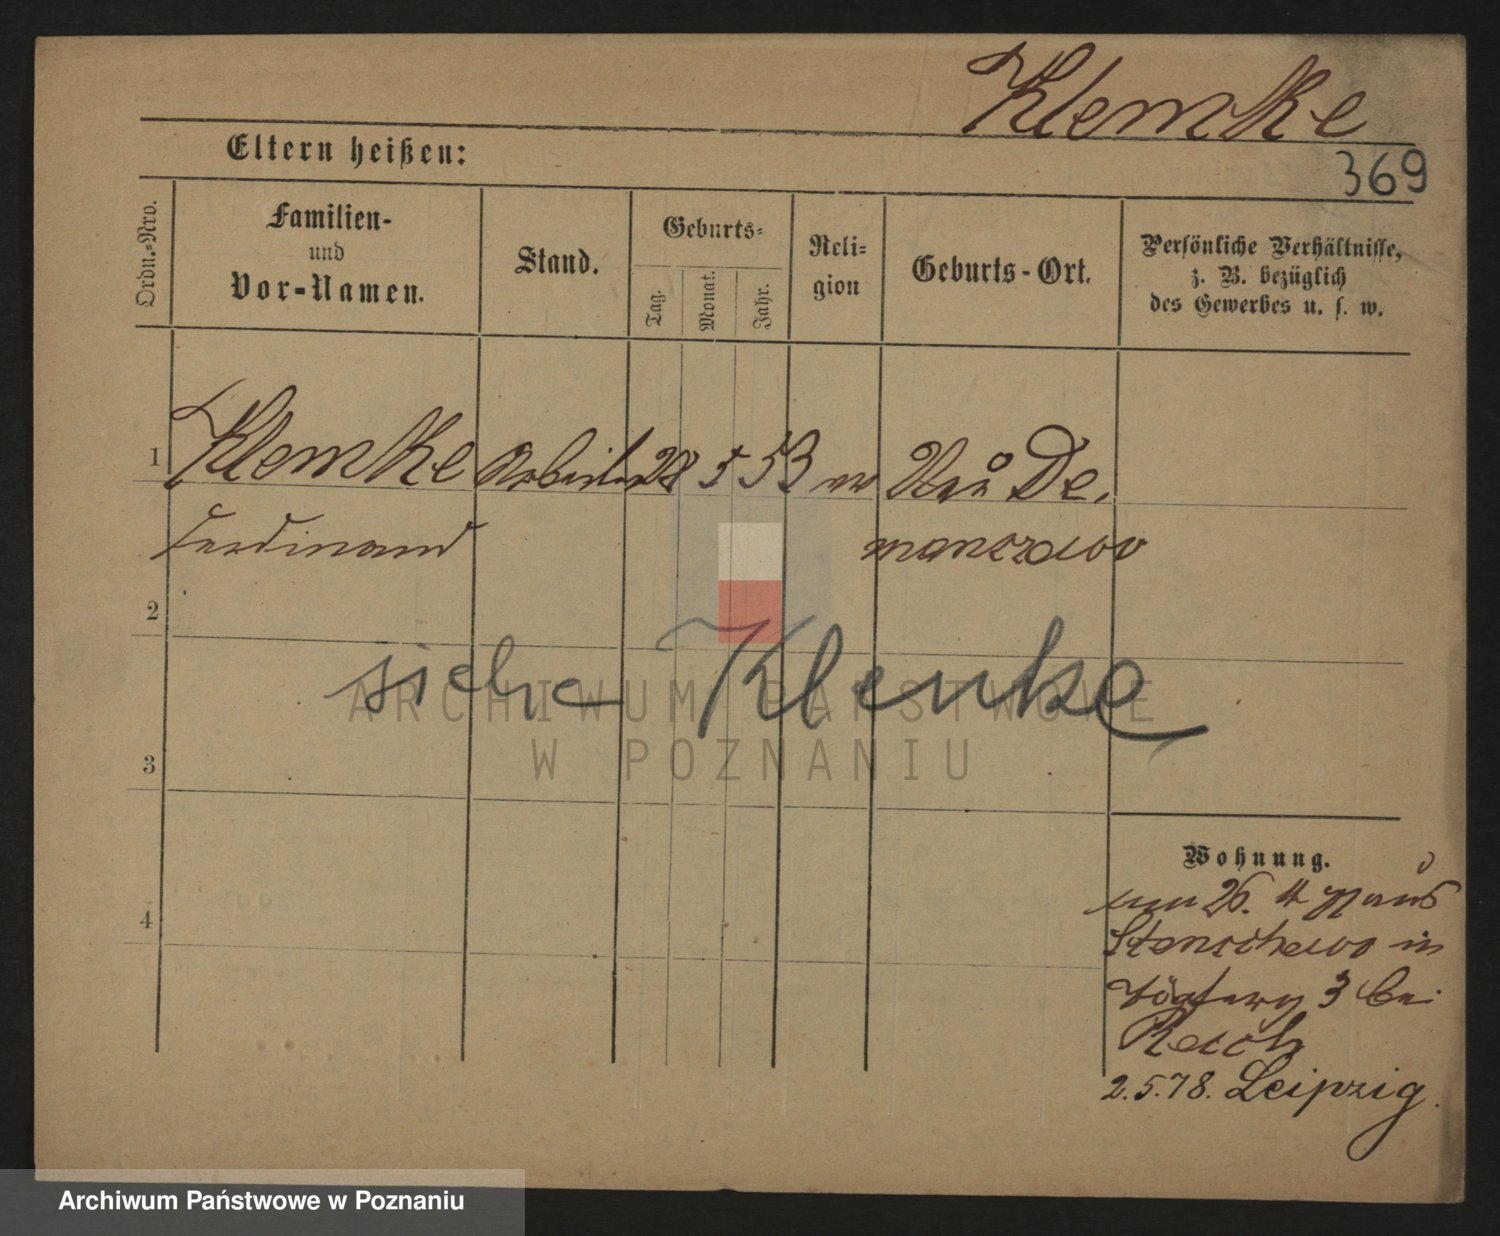 Klemke
369
Eltern heißen:
Ordn.-Nro.
Familien-
und
Vor-Namen.
Stand.
Geburts-
Tag.
Monat.
Jahr.
Reli-
gion
Geburts-Ort.
Persönliche Verhältnisse,
z. B. bezüglich
des Gewerbes u. s. w.
1 Klemke Arbeiter 28 5 53 Neu De.
Ferdinand manczewo
2
siehe Klenke
ARCHIWUM PAŃSTWOWE
W POZNANIU
3
Wohnung.
26. 4
Stenschewo in
3 bei
4
2.5.78. Leipzig.
Archiwum Państwowe w Poznaniu